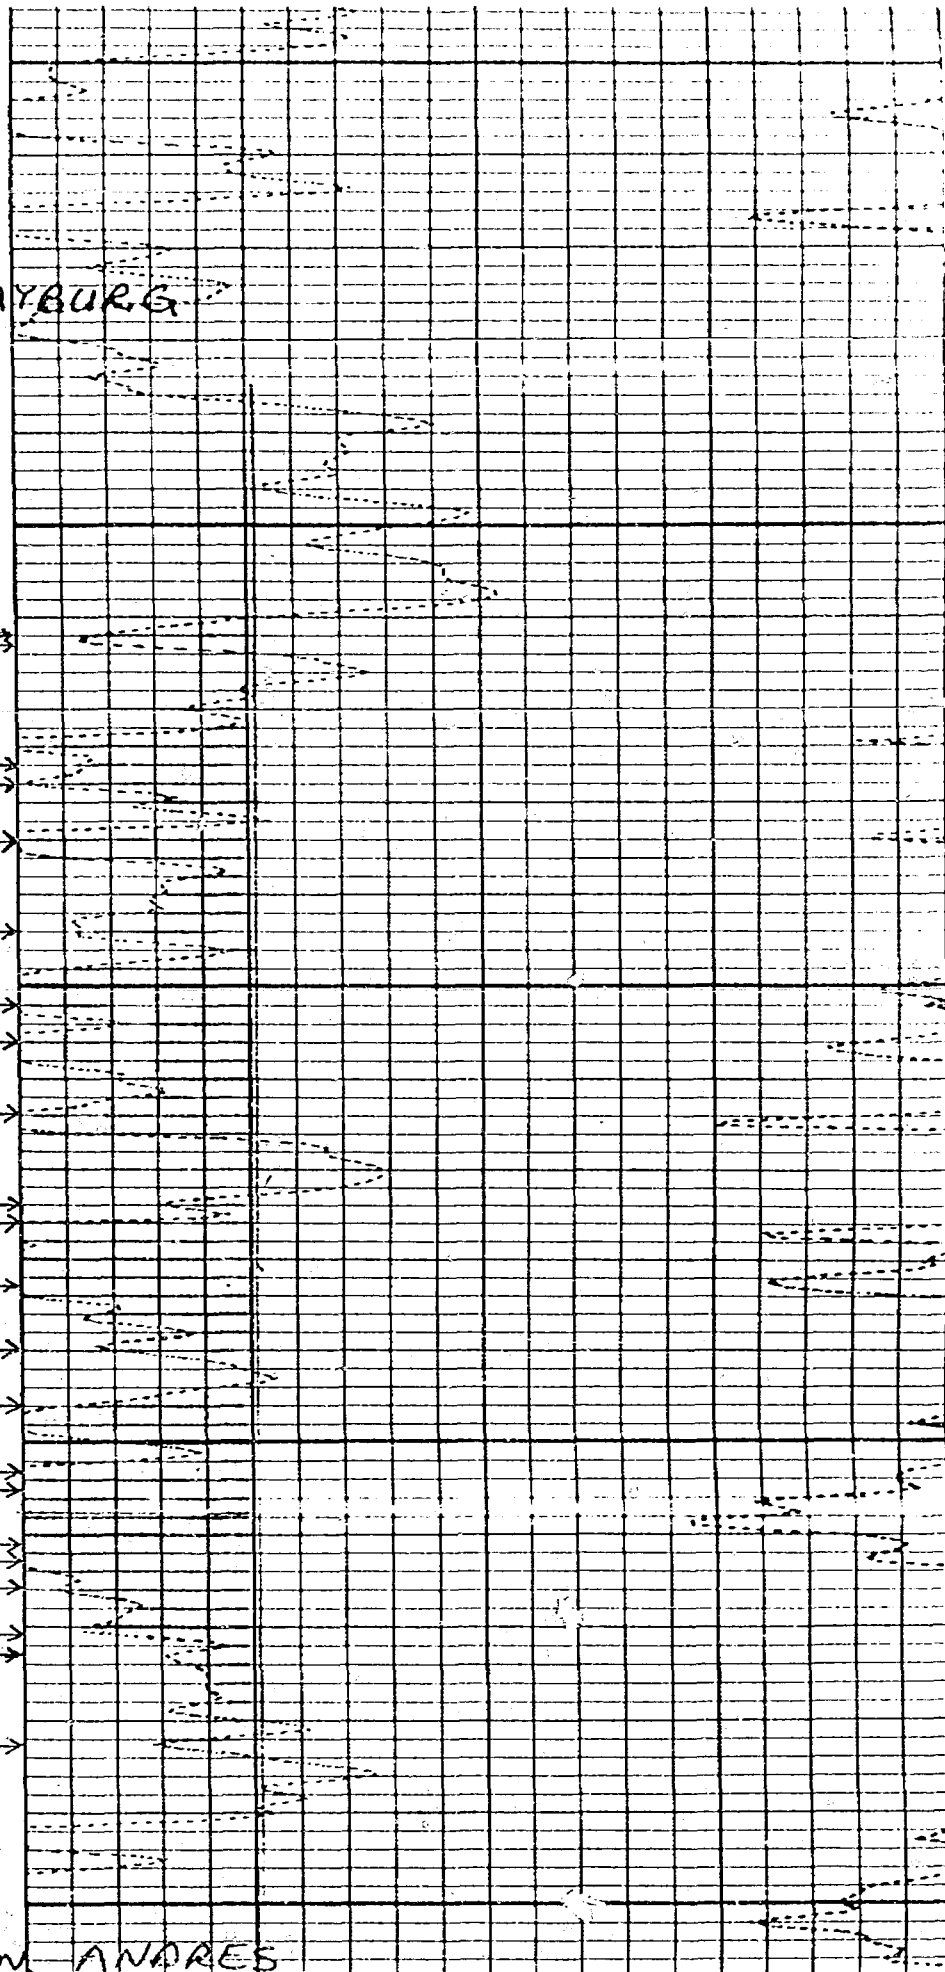 AYBURG
N ANDRES